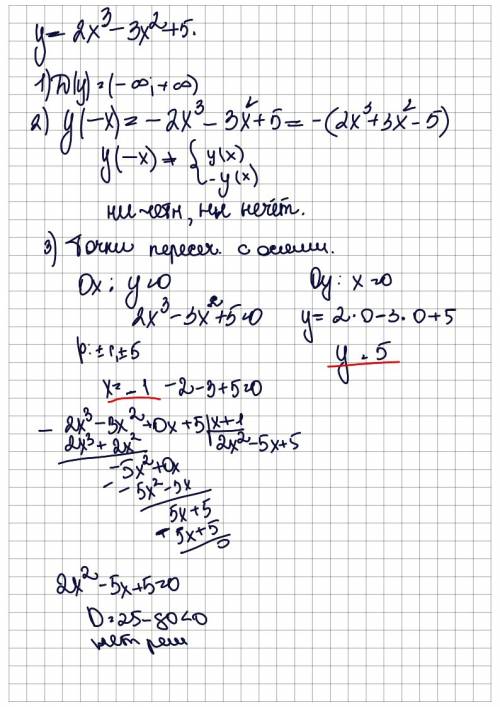 y = 2x³ - 3x² + 5.
1) D(y) = (-∞; +∞)
2) y(-x) = -2x³ - 3x² + 5 = -(2x³ + 3x² - 5)
y(-x) ≠ { y(x)
-y(x)
ни чётн, ни нечёт.
3) Точки пересеч. с осями.
Ox: y=0
2x³ - 3x² + 5 = 0
p: ±1, ±5
x = -1 -2-3+5=0
Oy: x=0
y = 2·0 - 3·0 + 5
y = 5
- 2x³ - 3x² + 0x + 5 | x+1
2x³ + 2x² | 2x² - 5x + 5
- -5x² + 0x
-5x² - 5x
5x + 5
- 5x + 5
0
2x² - 5x + 5 = 0
D = 25 - 80 < 0
нет реш